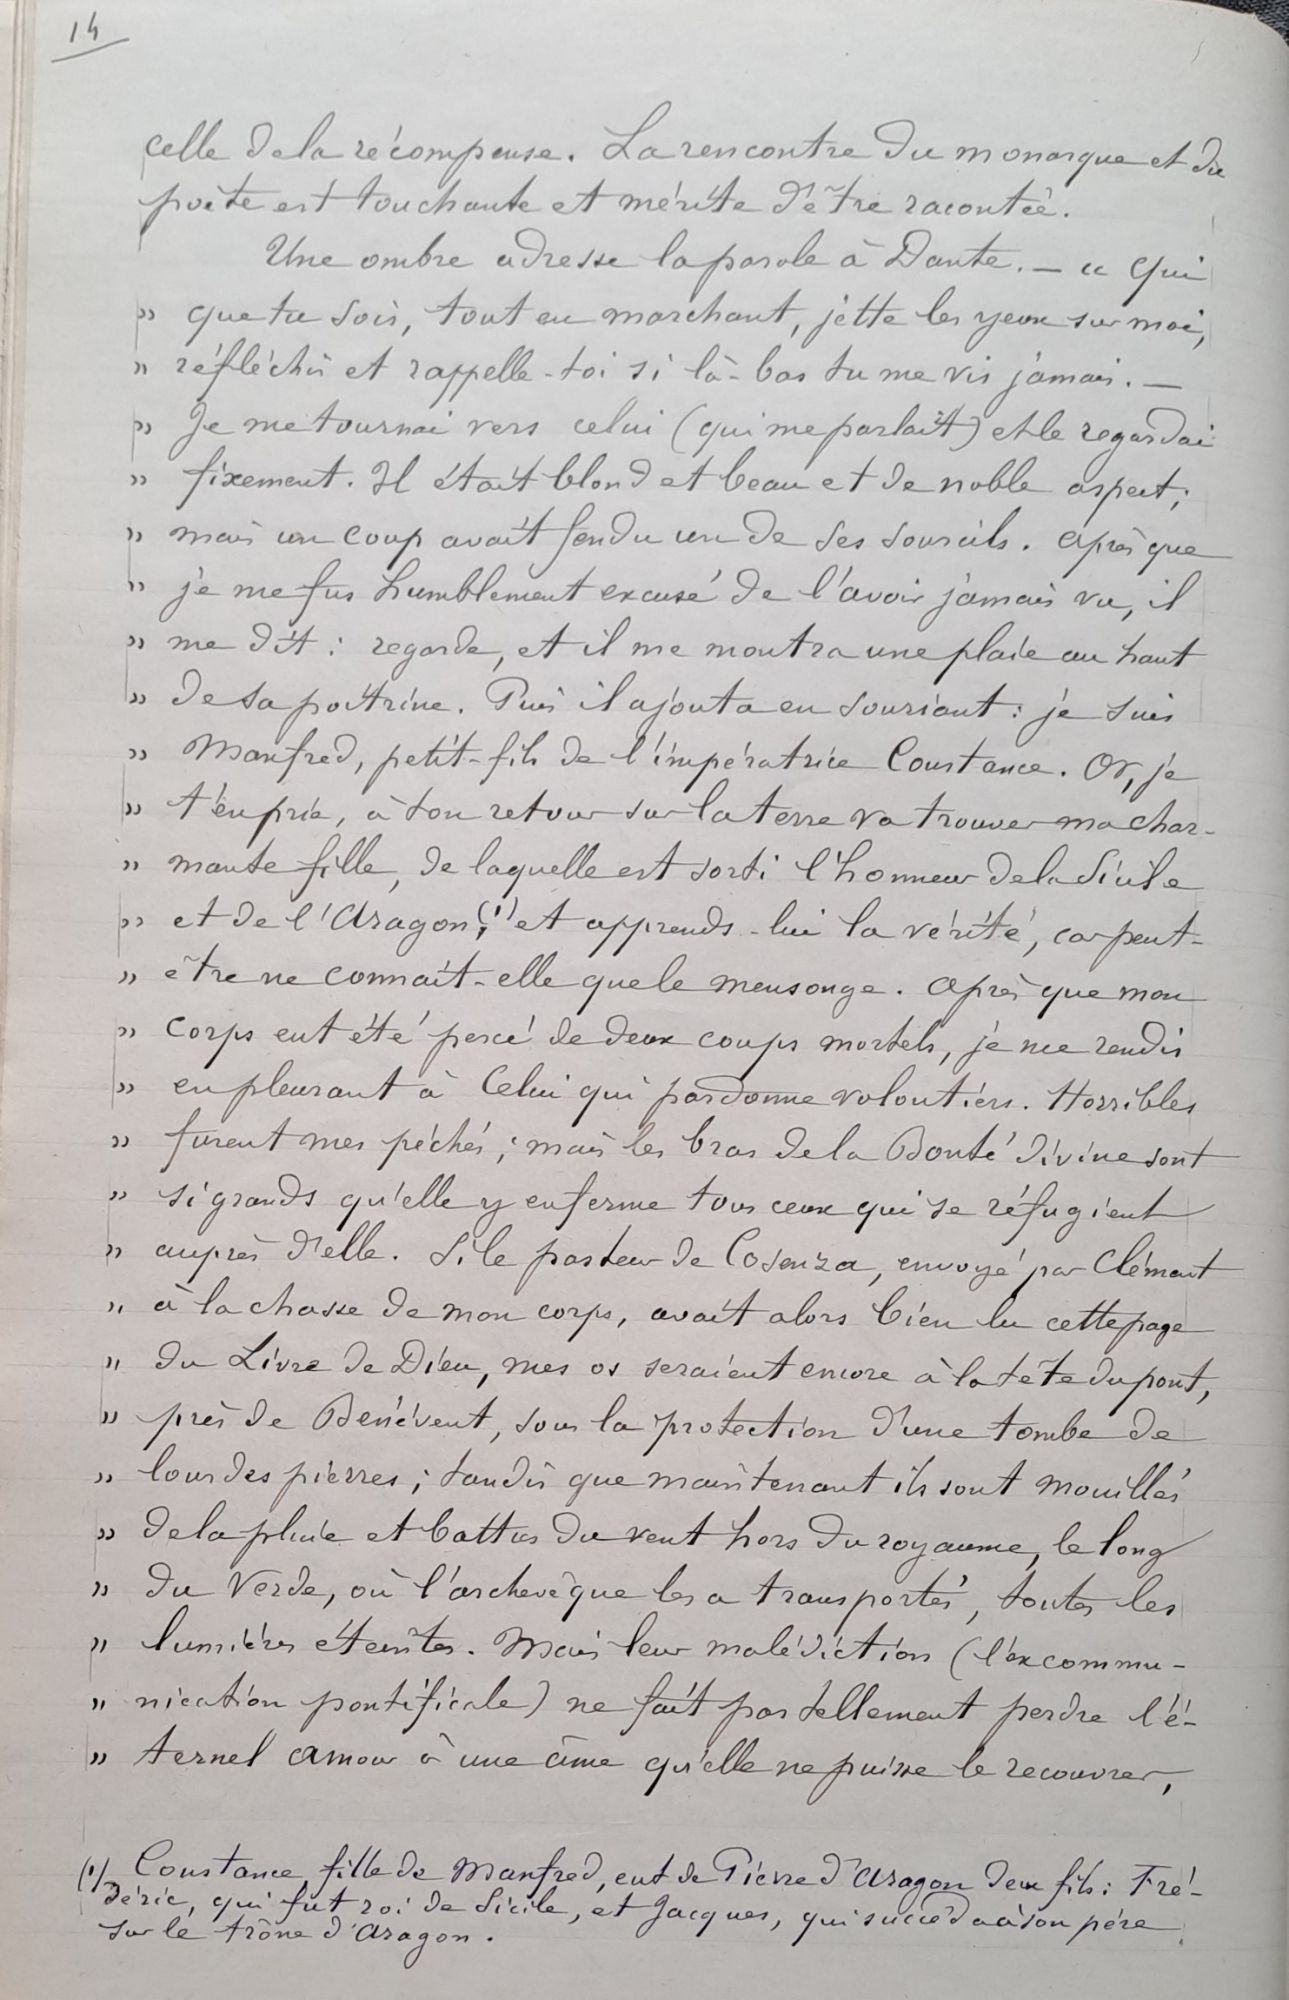 14
celle de la récompense. La rencontre du monarque et du
poète est touchante et mérite d'être racontée.
Une ombre adresse la parole à Dante. — « Qui
» que tu sois, tout en marchant, jette les yeux sur moi,
» réfléchis et rappelle-toi si là-bas tu me vis jamais. —
» Je me tournai vers celui (qui me parlait) et le regardai
» fixement. Il était blond et beau et de noble aspect;
» mais un coup avait fendu un de ses sourcils. Après que
» je me fus humblement excusé de l'avoir jamais vu, il
» me dit : regarde, et il me montra une plaie au haut
» de sa poitrine. Puis il ajouta en souriant : je suis
» Manfred, petit-fils de l'impératrice Constance. Or, je
» t'en prie, à ton retour sur la terre va trouver ma char-
» mante fille, de laquelle est sorti l'honneur de la Sicile
» et de l'Aragon,(1) et apprends-lui la vérité, car peut-
» être ne connait-elle que le mensonge. Après que mon
» corps eut été percé de deux coups mortels, je me rendis
» en pleurant à Celui qui pardonne volontiers. Horribles
» furent mes péchés; mais les bras de la Bonté divine sont
» si grands qu'elle y enferme tous ceux qui se réfugient
» auprès d'elle. Si le pasteur de Cosenza, envoyé par Clément
» à la chasse de mon corps, avait alors bien lu cette page
» du Livre de Dieu, mes os seraient encore à la tête du pont,
» près de Bénévent, sous la protection d'une tombe de
» lourdes pierres; tandis que maintenant ils sont mouillés
» de la pluie et battus du vent hors du royaume, le long
» du Verde, où l'archevêque les a transportés, toutes les
» lumières éteintes. Mais leur malédiction (l'excommu-
» nication pontificale) ne fait pas tellement perdre l'é-
» ternel amour à une âme qu'elle ne puisse le recouvrer,
(1) Constance, fille de Manfred, eut de Pierre d'Aragon deux fils : Fré-
déric, qui fut roi de Sicile, et Jacques, qui succéda à son père
sur le trône d'Aragon.